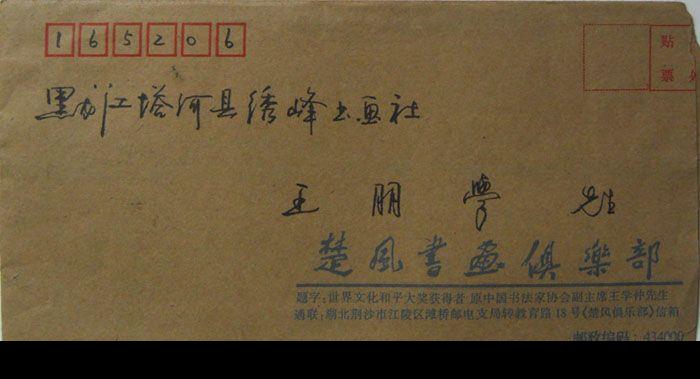 165206
贴
票
黑龙江塔河县绣峰书画社
王朋学 先生
楚風書畫俱樂部
题字:世界文化和平大奖获得者 原中国书法家协会副主席王学仲先生
通联:湖北荆沙市江陵区滩桥邮电支局转教育路18号《楚风俱乐部》信箱
邮政编码:434000